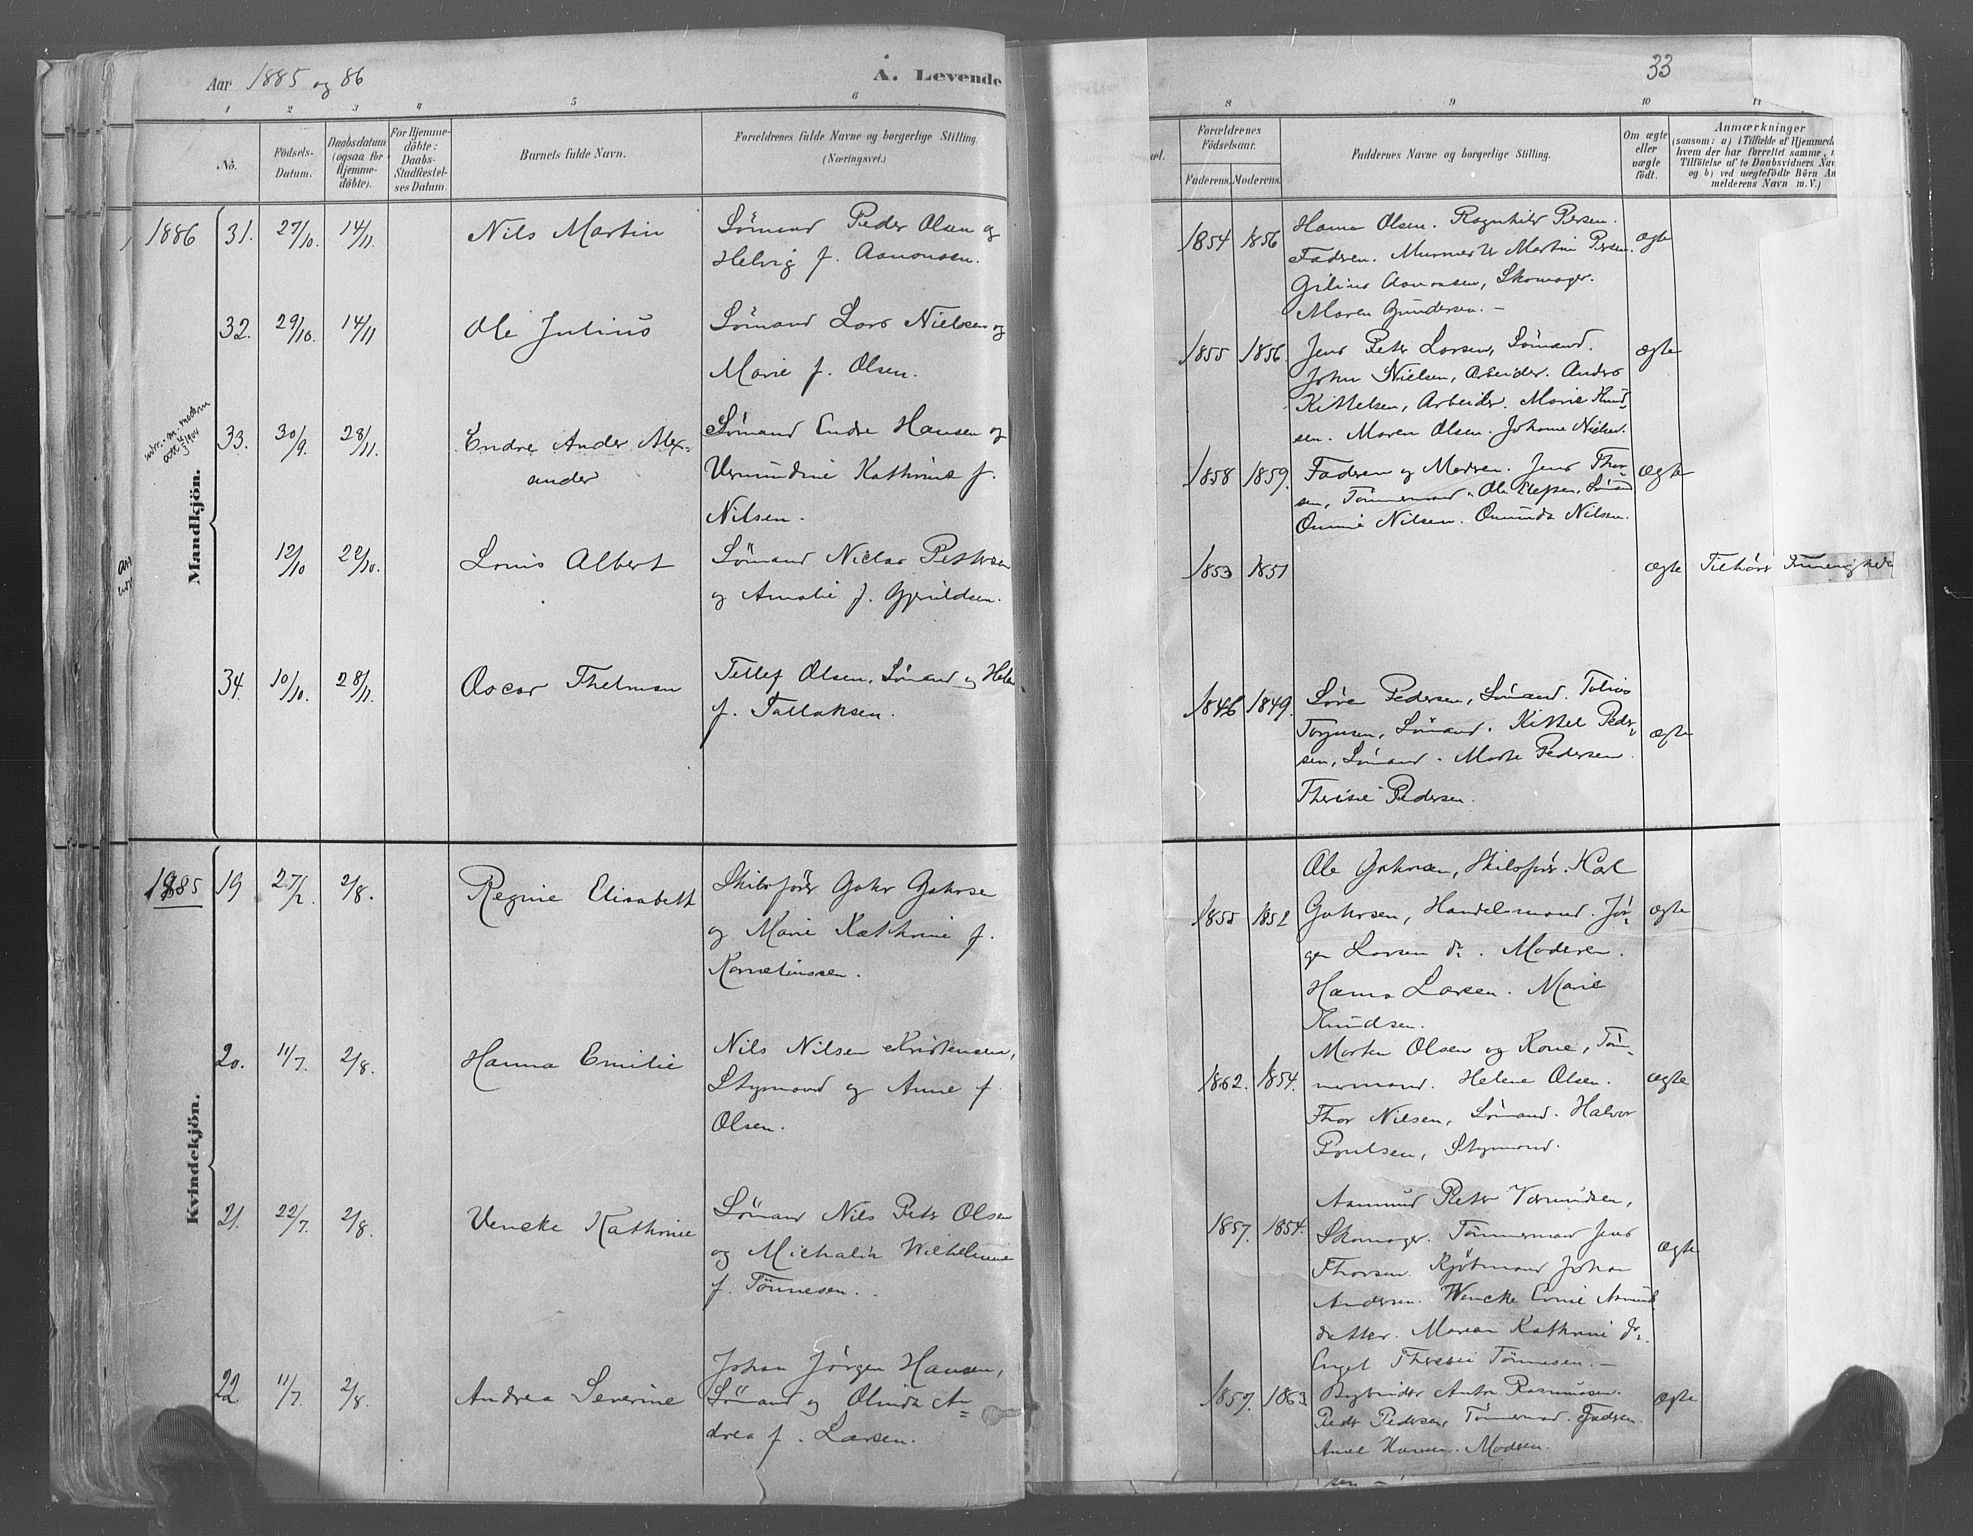 Aar 1885 og 86
A. Levende
33
1 2 3 4 5 6
8 9 10 11
No.
Födsels-Datum.
Daabsdatum (ogsaa for Hjemme-döbte).
For Hjemme-döbte: Daabs-Stadfæstel-ses Datum.
Barnets fulde Navn.
Forældrenes fulde Navne og borgerlige Stilling.
(Næringsvei.)
Forældrenes Födselsaar.
Faderens. Moderens.
Faddernes Navne og borgerlige Stilling.
Om ægte eller uægte födt.
Anmærkninger
(saasom: a) i Tilfælde af Hjemmed
hvem der har forrettet samme,
Tilföielse af to Daabsvidners Nav
og b) ved uægtefödte Börn An
melderens Navn m. V.)
Mandkjön.
1886 31. 27/10. 14/11 Nils Martin
Sömand Peder Olsen og
Helvig f. Aanonsen.
1854 1856
Hanna Olsen. Ragnhild Persen.
Faderen. Murmester Martin Persen.
Gilius Aanonsen, Skomager.
Maren Gundersen. —
ægte
32. 29/10. 14/11 Ole Julius
Sömand Lars Nielsen og
Marie f. Olsen.
1855 1856.
Jens Peter Larsen, Sömand.
John Nielsen, Arbeider. Anders
Kittelsen, Arbeider. Marie Knud-
sen. Maren Olsen. Johanne Nielsen.
ægte
33. 30/9. 28/11. Endre Ander Alex-
ander
Sömand Endre Hansen og
Vermundine Kathrine f.
Nilsen.
1858 1859.
Faderen og Modren. Jens Thor-
sen, Tömmermand. Ole Ellefsen, Sömand
Nilsen. Nilsen.
ægte
12/10 22/10. Louis Albert
Sömand Niclas Pettersen
og Amalie f. Gjeruldsen.
1853 1851
ægte Tilhörer Frimenighed
34. 10/10. 28/11. Oscar Thelman
Tellef Olsen, Sömand og Helene
f. Tallaksen.
1846 1849.
Sören Pedersen, Sömand. Tobias
Torjusen, Sömand. Kittel Peder-
sen, Sömand. Marte Pedersen
Therese Pedersen.
ægte
Kvindekjön.
1885 19 27/2. 2/8. Regine Elisabeth
Skibsförer Gahr Gahrse
og Marie Kathrine f.
Korneliussen.
1855 1852
Ole Gahrsen, Skibsförer. Karl
Gahrsen, Handelsmand. Jör-
gen Larsen do. Moderen.
Hanna Larsen. Marie
Knudsen.
ægte
20. 11/7. 2/8. Hanna Emilie
Nils Nilsen Kristensen,
Styrmand og Anne f.
Olsen.
1862. 1854.
Morten Olsen og Kone, Töm-
mermand. Helene Olsen.
Thor Nilsen, Sömand. Halvor
Poulsen, Styrmand.
ægte
21. 22/7. 2/8. Vencke Kathrine
Sömand Nils Peter Olsen
og Michalia Wilhelmine
f. Tönnesen.
1857. 1854.
Aamund Peter Vermundsen,
Skomager. Tömmermand Jens
Thorsen. Kjöbmand Johan
Andersen. Wencke
datter. Maren Kathrine
Engel Therese Tönnesen. —
ægte
22. 11/7. 2/8. Andrea Severine
Johan Jörgen Hansen,
Sömand og Olinda An-
drea f. Larsen.
1857. 1863.
Rasmussen.
Peder Pedersen, Tömmermand. Fadren.
Anne Hansen. Modren.
ægte